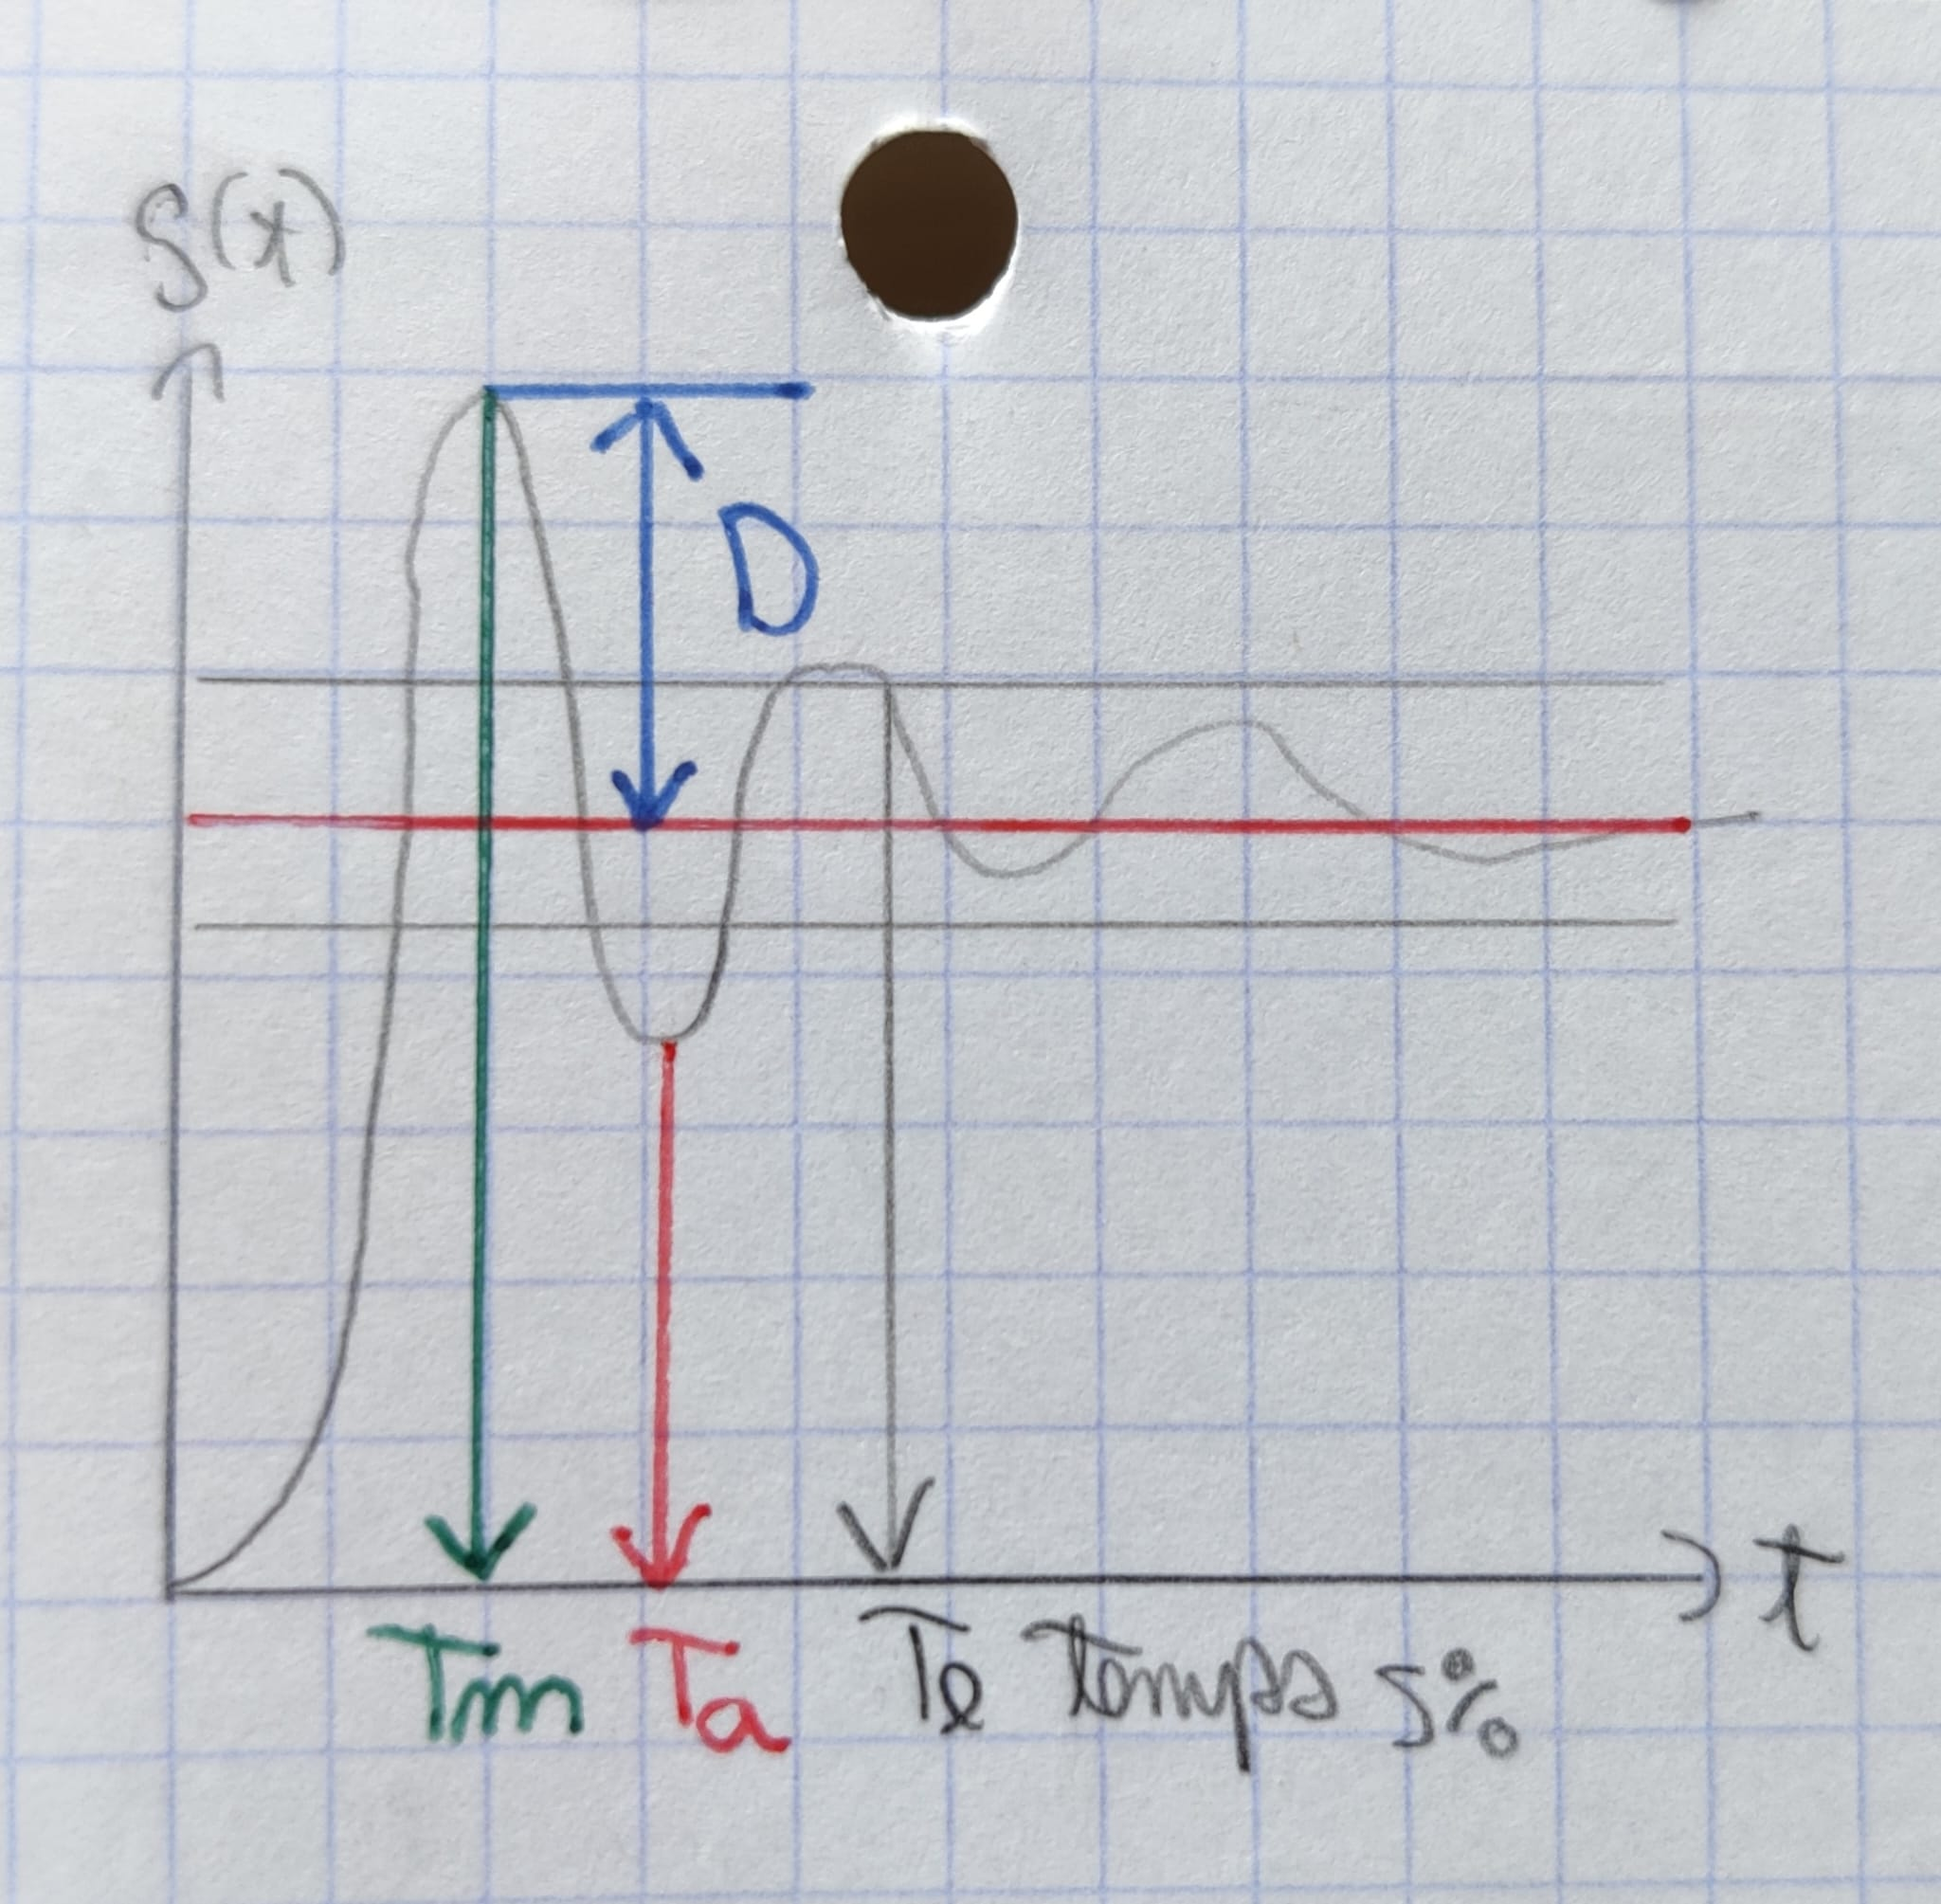 S(t)
D
t
Tm Ta Te temps 5%